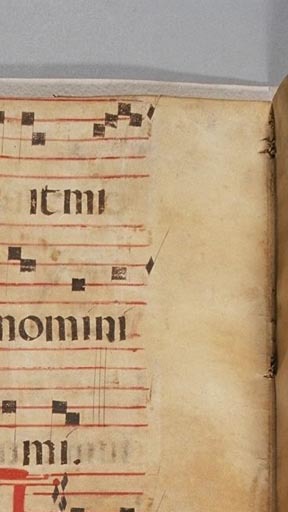 itmi
nomini
mi.